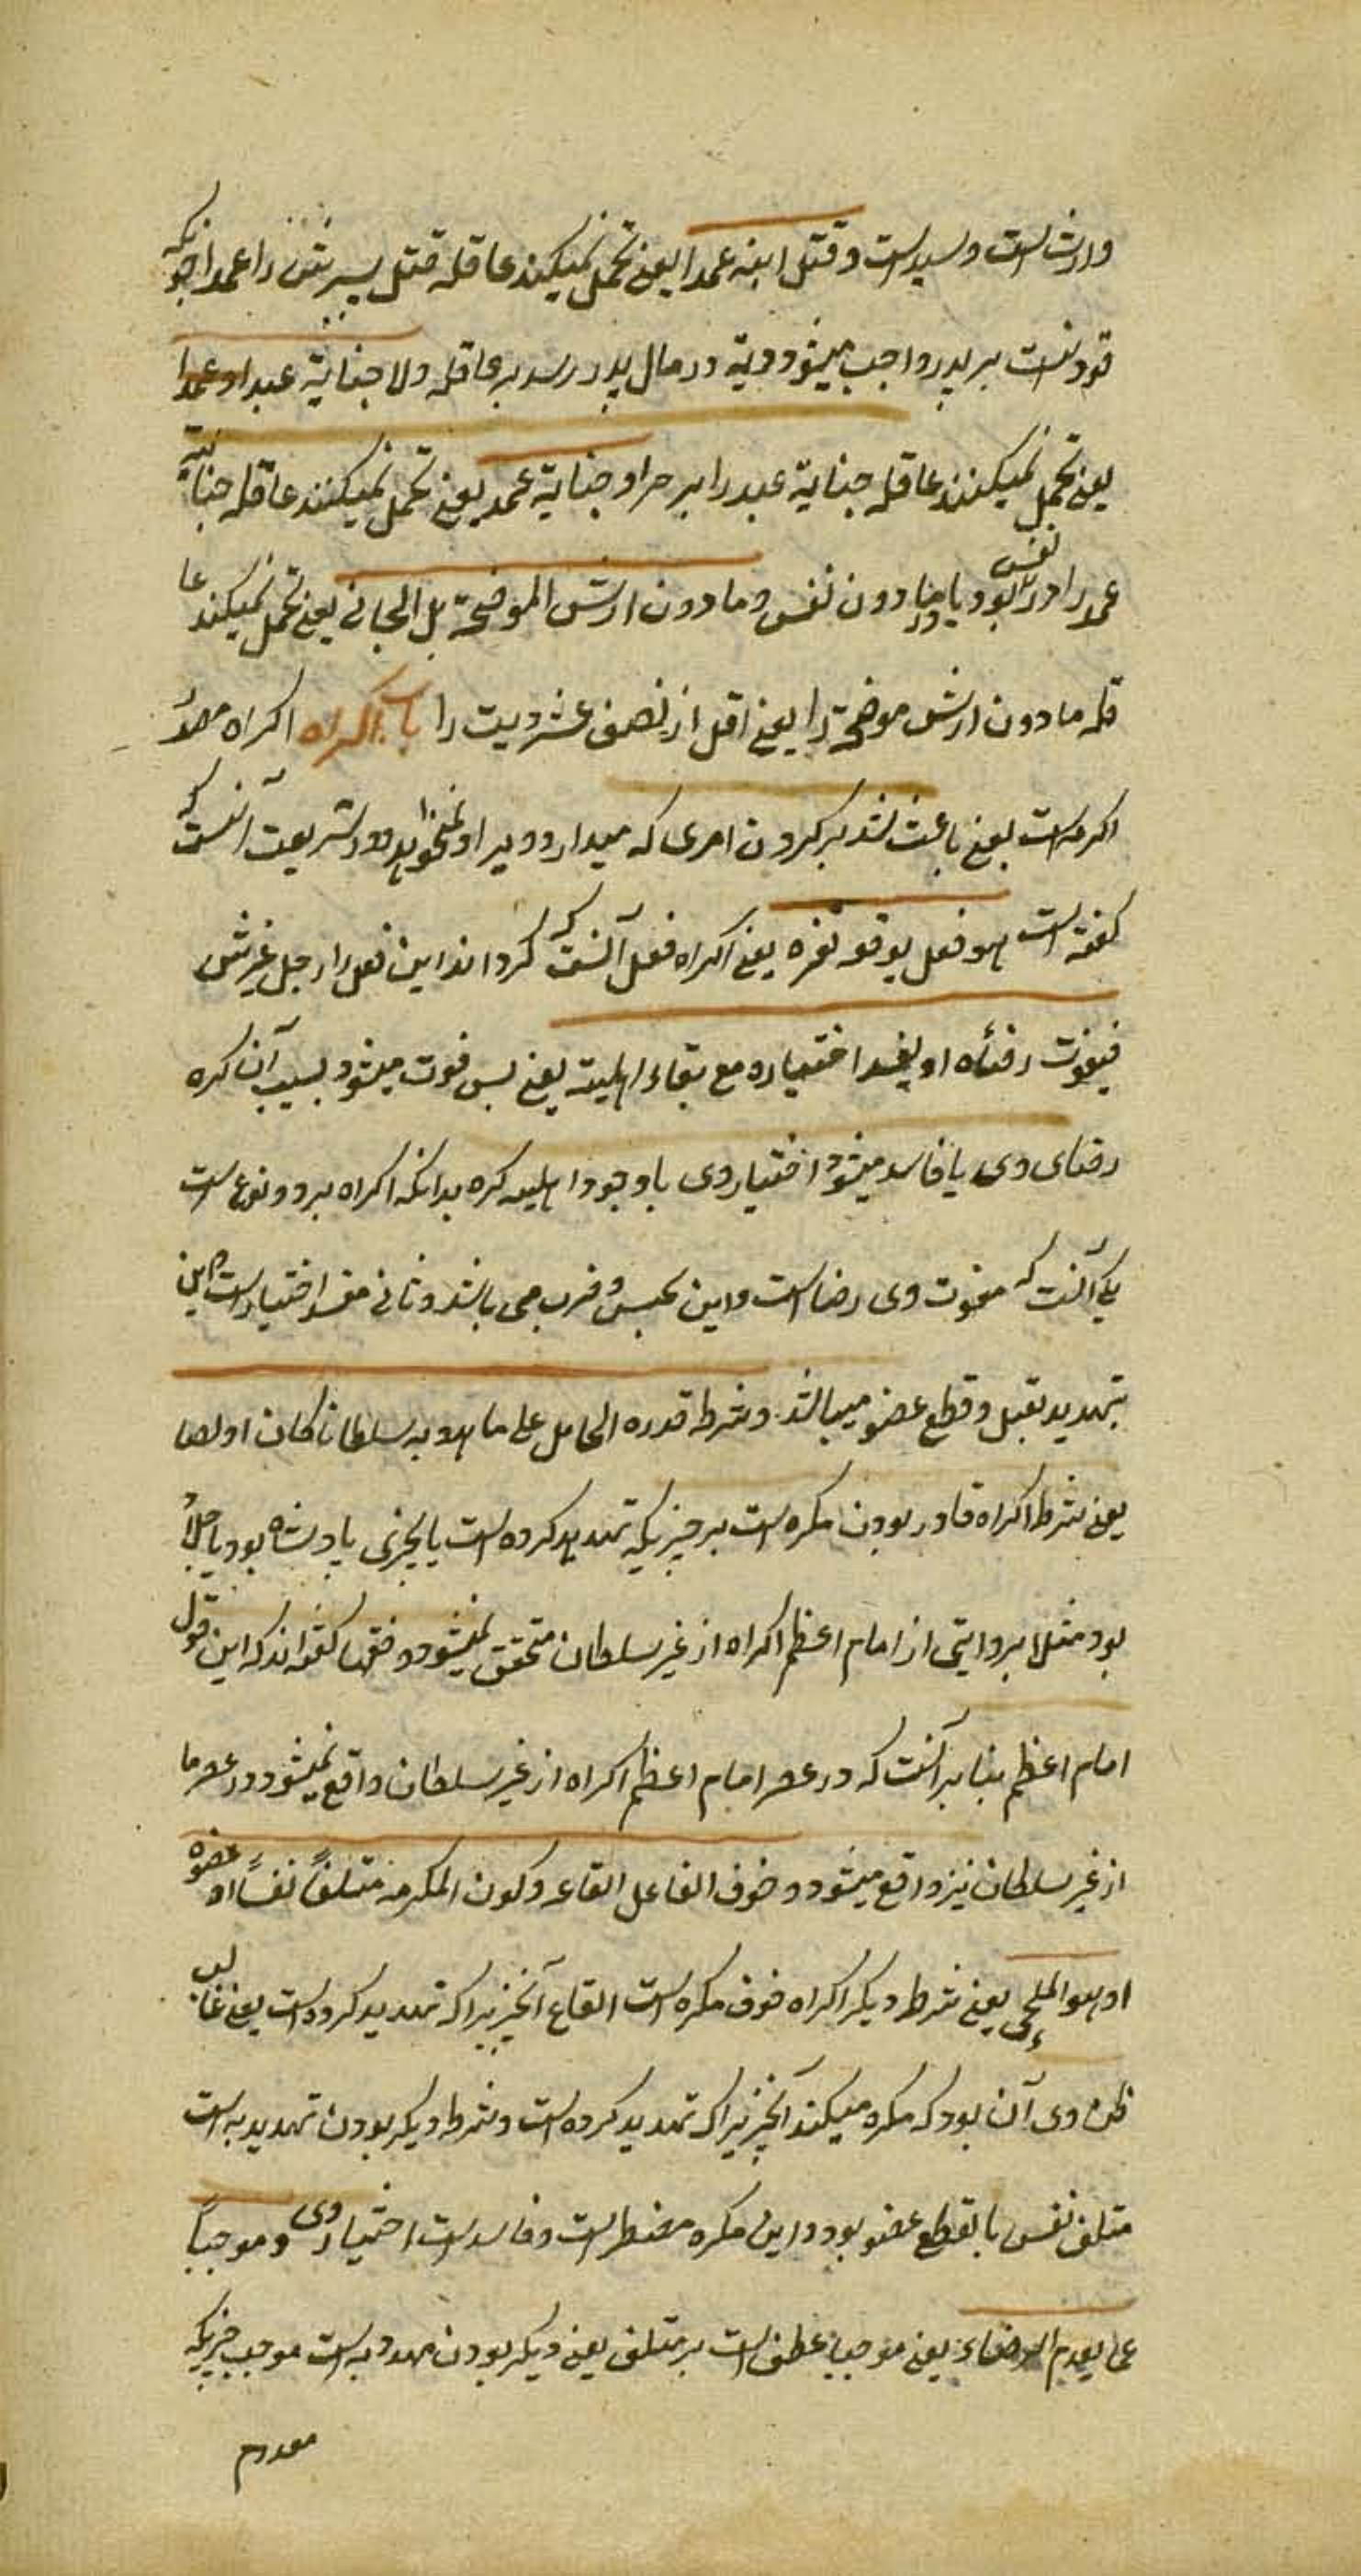 وارث است و سید است و قتل ابنه عمدا یعنی تحمل نمیکنند عاقله قتل پسرش را عمدا چونکه
قود نیست بر پدر واجب میشود دیة در مال پدر رسد بر عاقله ولا جنایة عبد او عمدا
یعنی تحمل نمیکنند عاقله جنایة عبد را بر حر او جنایة عمد یعنی تحمل نمیکنند عاقله جنایة
عمد را در نفس بود یا در مادون نفس و مادون ارش الموضحة بل الجانی یعنی تحمل نمیکنند عا
قله مادون ارش موضحة را یعنی اقل از نصف عشر دیت را باب اکراه اکراه مصدر
اکره است یعنی باعث شد بر کردن امری که میدارد ویرا و نمیخواهد و در شریعت آنست که
گفته است هو فعل یوقعه بغیره یعنی اکراه فعل آنست که گرداند این فعل را رجل غیرش
فیفوت رضاه او یفسد اختیاره مع بقاء اهلیته یعنی پس فوت میشود بسبب آن کره
رضای وی یا فاسد میشود اختیار وی با وجود اهلیه کره بدانکه اکراه بر دو نوع است
یکی آنست که مفوت وی رضا است و این بحبس و ضرب می باشد و ثانی مفسد اختیار است و این
بتهدید بقتل و قطع عضو میباشد و شرطه قدرة الحامل علی ما هدد به سلطانا کان او لصا
یعنی شرط اکراه قادر بودن مکره است بر چیزیکه تهدید کرده است بآنچیزی پادشاه بود یا
بود مثلا بروایتی از امام اعظم اکراه از غیر سلطان متحقق نمیشود و فقها گفته اند که این قول
امام اعظم بنا بر آنست که در عصر امام اعظم اکراه از غیر سلطان واقع نمیشود و در عصر ما
از غیر سلطان نیز واقع میشود و خوف الفاعل ایقاعه و کون المکره متلفا نفسا او عضوه
او هو الملجی یعنی شرط دیگر اکراه خوف مکره است ایقاع آنچیزیرا که تهدید کرده است یعنی غالب
ظن وی آن بود که مکره میکند آنچیزیرا که تهدید کرده است و شرط دیگر بودن تهدید به است
متلف نفس یا بقطع عضو بود و این مکره مضطر است و فاسد است اختیار وی و موجبا
عما یعدم الرضاء یعنی موجبا عطف است بر متلف یعنی دیگر بودن مهدد به است موجب چیزیکه
معدوم